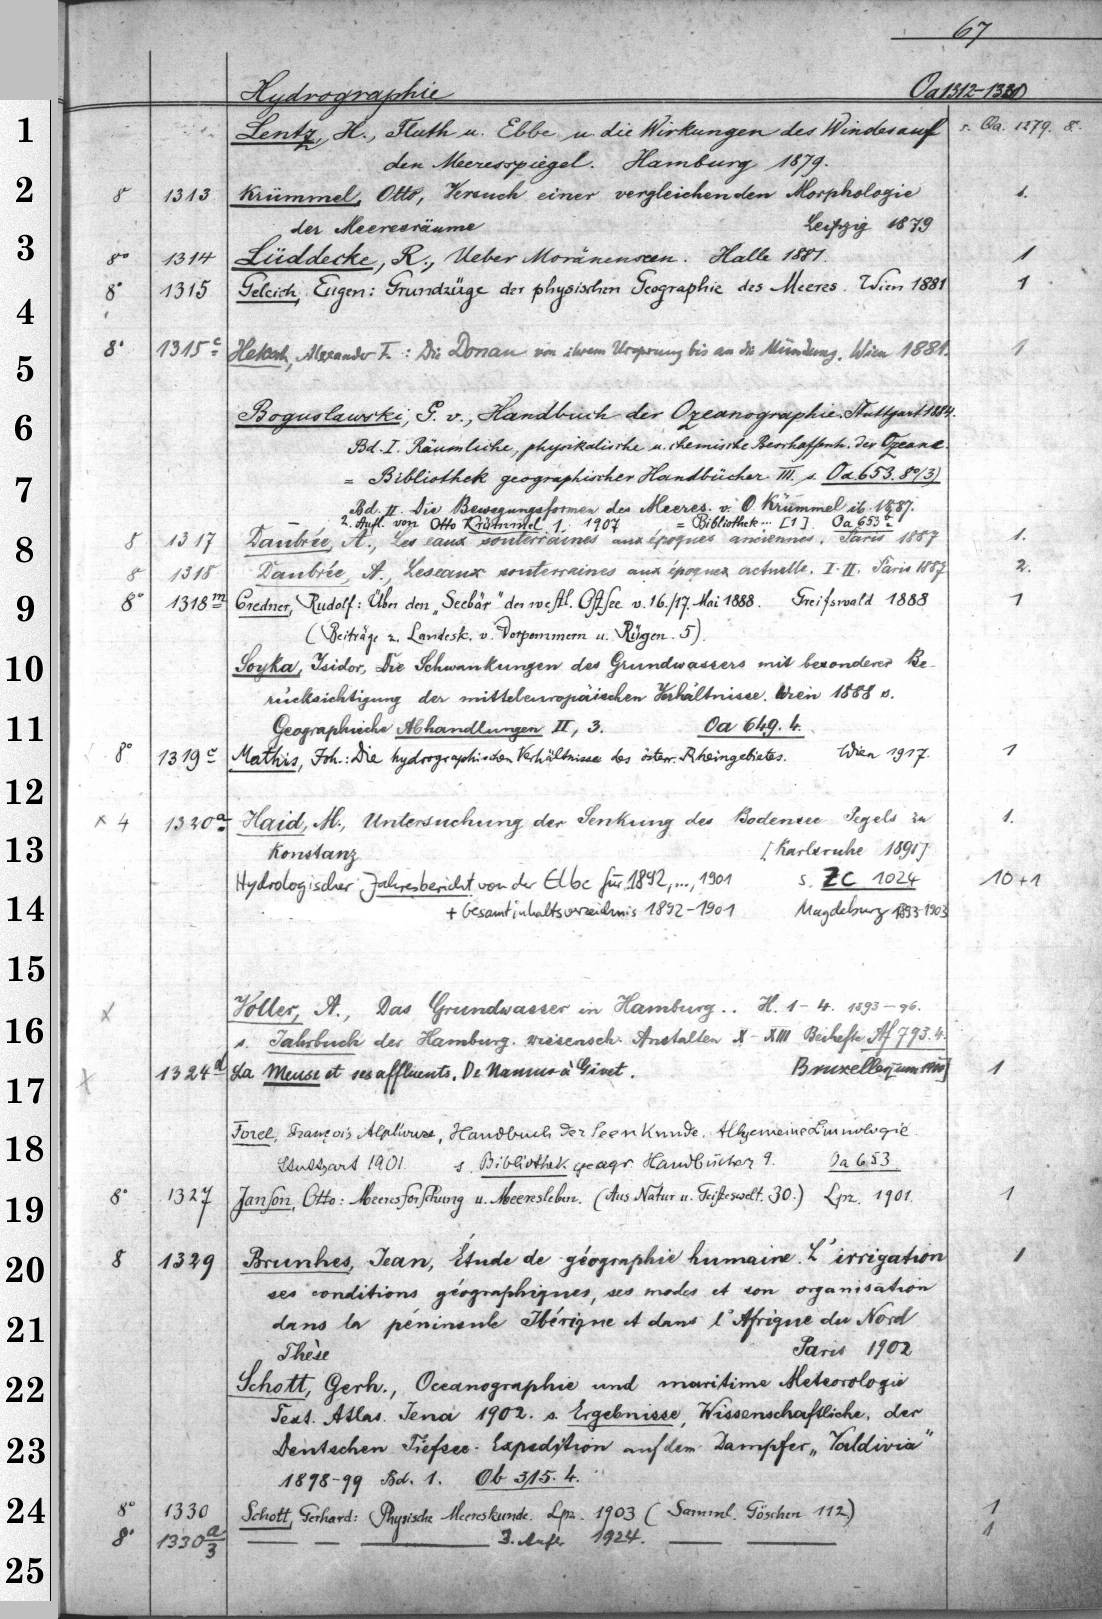 67
Hydrographie Oa 1312-1330
1 Lentz, H., Fluth u. Ebbe u. die Wirkungen des Windes auf s. Oa. 1279. 8.
den Meeresspiegel. Hamburg 1879.
2 8 1313 Krümmel, Otto, Versuch einer vergleichenden Morphologie 1.
der Meeresräume Leipzig 1879
3 8° 1314 Lüddecke, R., Ueber Moränenseen. Halle 1881. 1
8° 1315 Gelcich, Eugen: Grundzüge der physischen Geographie des Meeres. Wien 1881 1
4
8° 1315c Heksch, Alexander F.: Die Donau von ihrem Ursprung bis an die Mündung. Wien 1881. 1
5
6 Boguslawski, G. v., Handbuch der Ozeanographie. Stuttgart 1884.
Bd. I. Räumliche, physikalische u. chemische Beschaffenh. der Ozeane.
7 = Bibliothek geographischer Handbücher III, s. Oa 653. 8°/3)
Bd. II. Die Bewegungsformen des Meeres. v. O. Krümmel ib. 1887.
2. Aufl. von Otto Krümmel 1. 1907 = Bibliothek... [1]. Oa 653
8 8 1317 Daubrée, A., Les eaux souterraines aux époques anciennes. Paris 1887 1.
8 1318 Daubrée, A., Les eaux souterraines aux époques actuelle. I-II. Paris 1887 2.
9 8° 1318m Credner, Rudolf: Über den „Seebär" der westl. Ostsee v. 16./17. Mai 1888. Greifswald 1888 1
(Beiträge z. Landesk. v. Vorpommern u. Rügen. 5).
10 Soyka, Isidor, Die Schwankungen des Grundwassers mit besonderer Be-
rücksichtigung der mitteleuropäischen Verhältnisse. Wien 1888 s.
11 Geographische Abhandlungen II, 3. Oa 649. 4.
8° 1319c Mathis, Joh.: Die hydrographischen Verhältnisse des österr. Rheingebietes. Wien 1917. 1
12
x 4 1320a Haid, M., Untersuchung der Senkung des Bodensee Pegels zu 1.
13 Konstanz [Karlsruhe 1891]
Hydrologischer Jahresbericht von der Elbe für 1892, ..., 1901 s. ZC 1024 10+1
14 + Gesamtinhaltsverzeichnis 1892-1901 Magdeburg 1893-1903
15
x Voller, A., Das Grundwasser in Hamburg.. H. 1-4. 1893-96.
16 s. Jahrbuch der Hamburg. wissensch. Anstalten X-XIII Beihefte Af 793. 4.
x 1324d La Meuse et ses affluents. De Namur à Givet. Bruxelles 1
17
18 Forel, François Alphonse, Handbuch der Seenkunde. Allgemeine Limnologie.
Stuttgart 1901. s. Bibliothek geogr. Handbücher 9. Oa 653
19 8° 1327 Janson, Otto: Meeresforschung u. Meeresleben. (Aus Natur u. Geisteswelt. 30.) Lpz. 1901. 1
20 8 1329 Brunhes, Jean, Étude de géographie humaine. L'irrigation 1
ses conditions géographiques, ses modes et son organisation
21 dans la péninsule Ibérique et dans l'Afrique du Nord
Thèse Paris 1902
22 Schott, Gerh., Oceanographie und maritime Meteorologie
Text. Atlas. Jena 1902. s. Ergebnisse, Wissenschaftliche, der
23 Deutschen Tiefsee-Expedition auf dem Dampfer „Valdivia"
1898-99 Bd. 1. Ob 315. 4.
24 8° 1330 Schott, Gerhard: Physische Meereskunde. Lpz. 1903 (Samml. Göschen 112) 1
8° 1330a/3 — — — 3. Aufl. 1924. — — 1
25